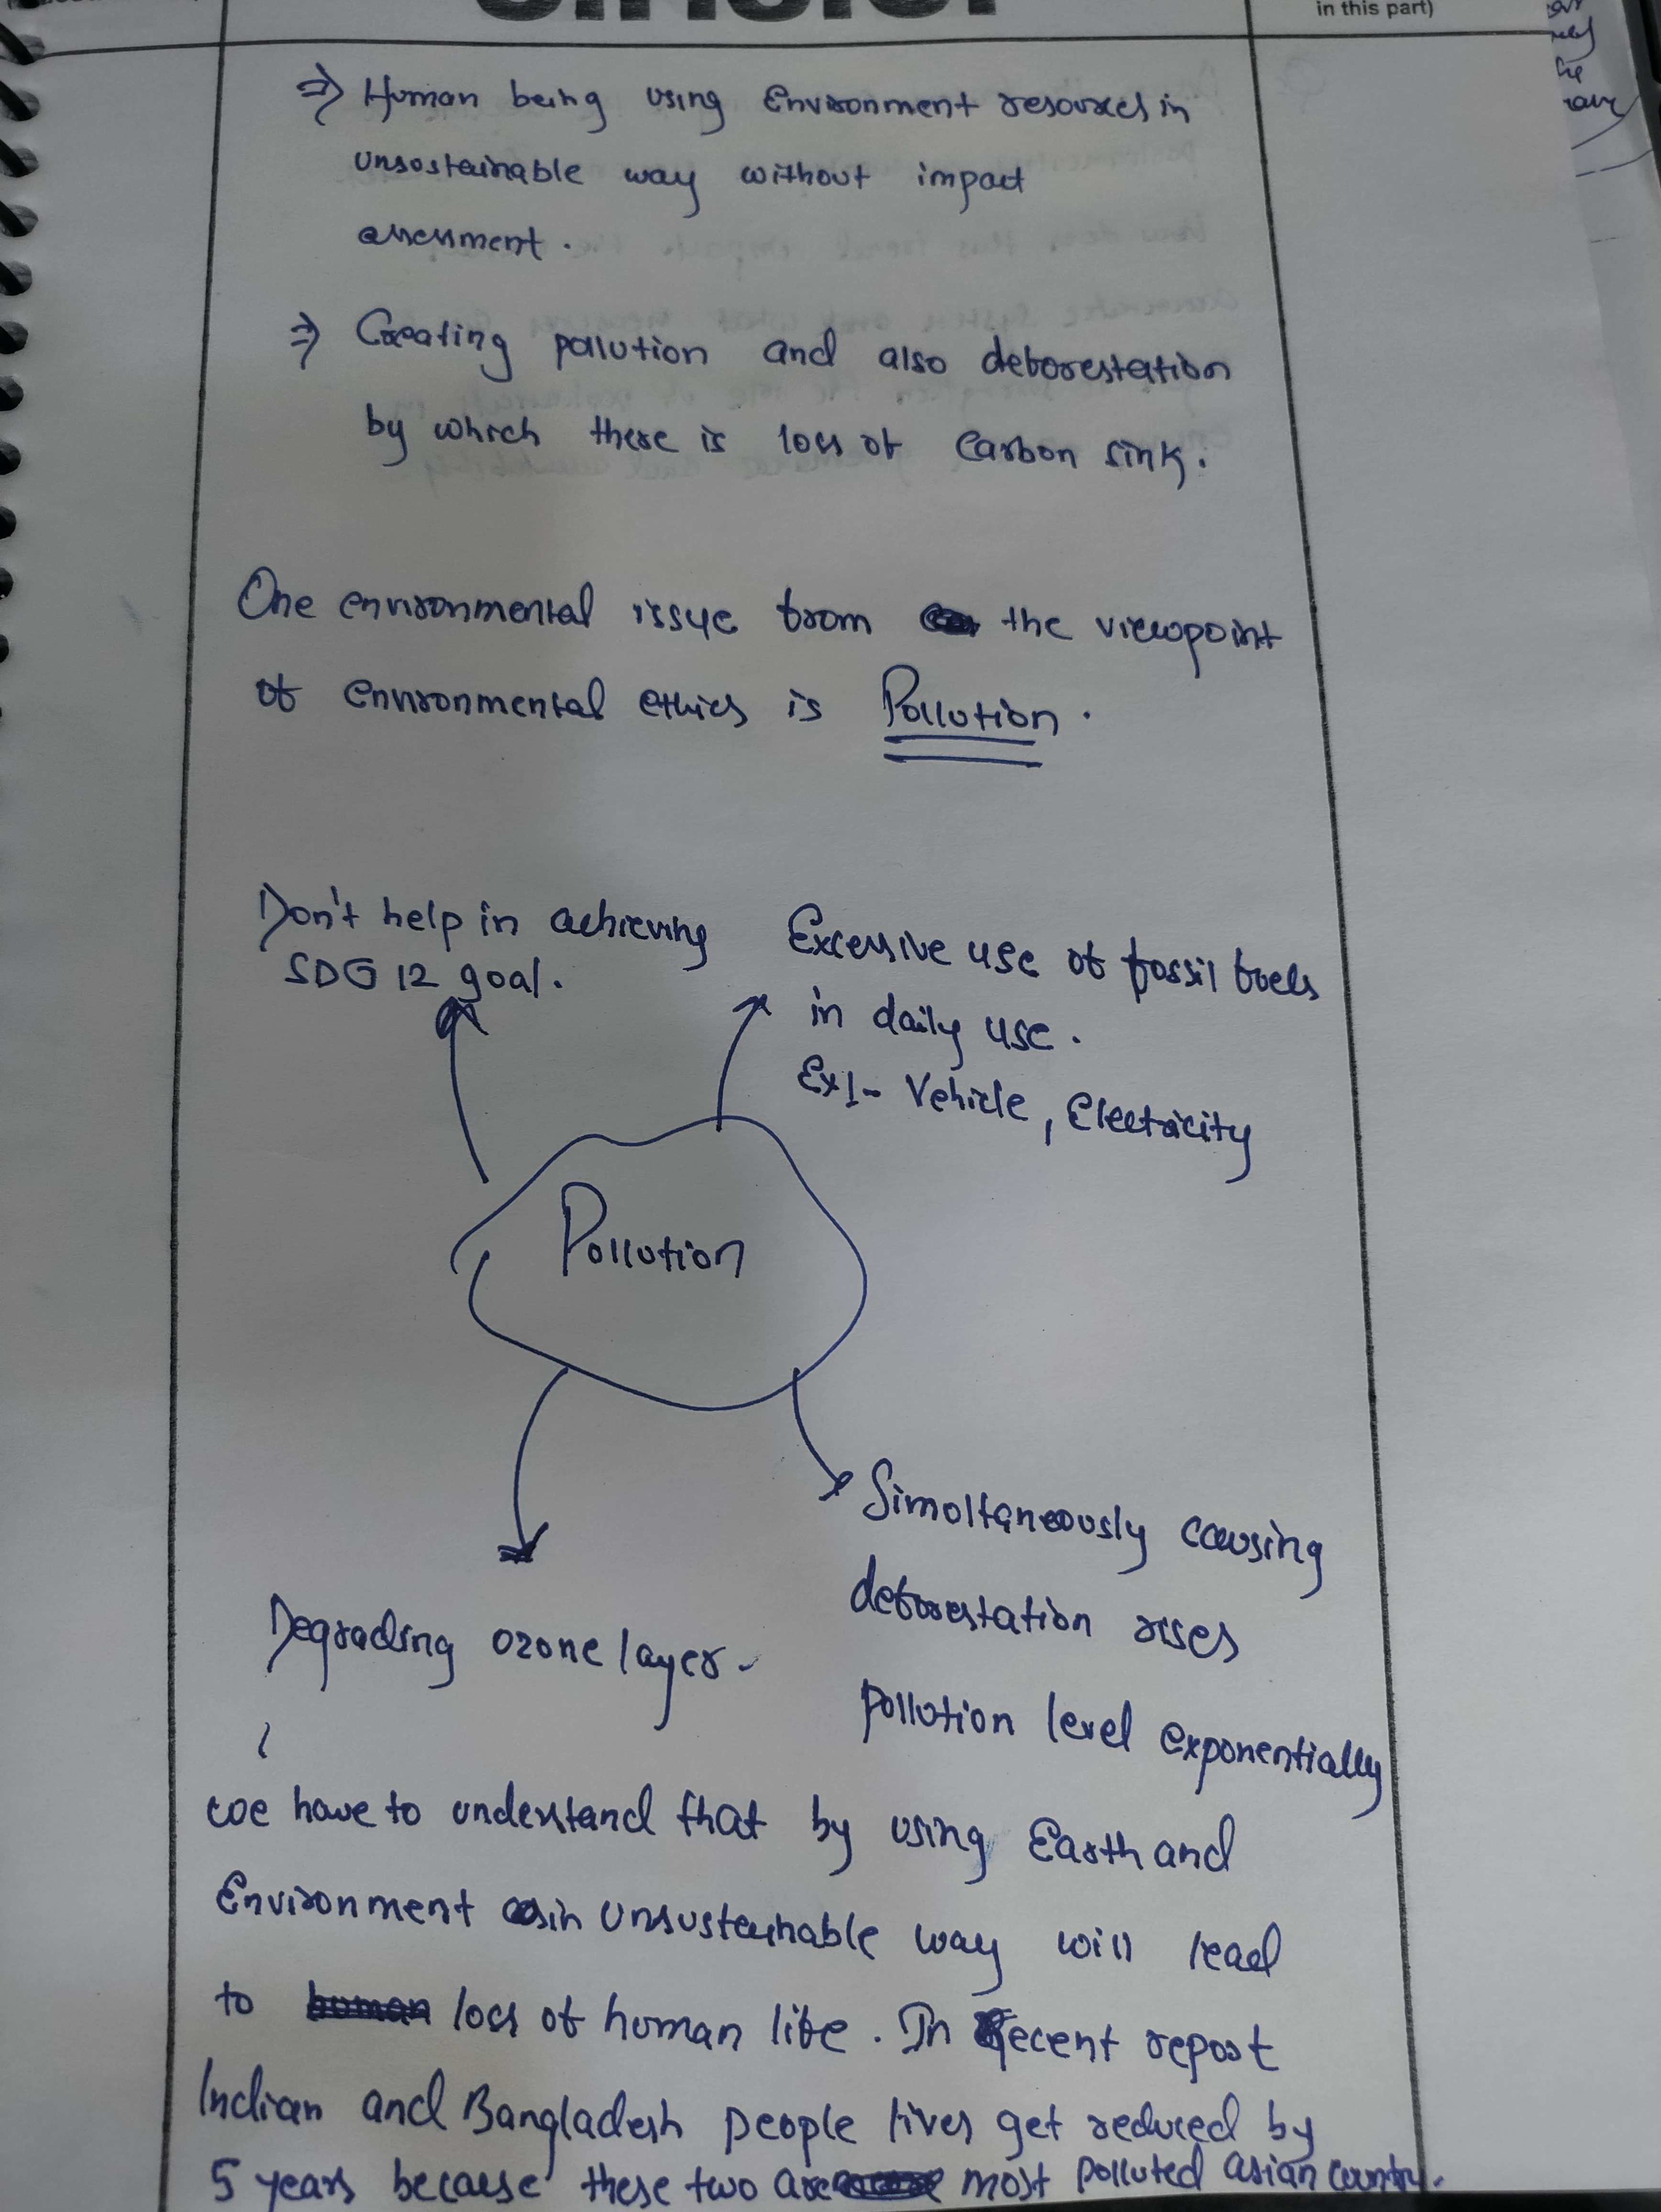 in this part)
⇒ Human being using Environment resources in
unsostainable way without impact
assessment.
⇒ Creating pollution and also deforestation
by which there is loss of Carbon sink.
One environmental issye from the viewpoint
of environmental ethics is Pollution.
Don't help in achieving
SDG 12 goal.
Excessive use of fossil fuels
in daily use.
Ex:- Vehicle, Electricity
Pollution
Simoltaneously causing
deforestation rises
pollution level exponentially
Degrading ozone layer.
we have to understand that by using Earth and
Environment in unsustainable way will lead
to loss of human life. In recent report
Indian and Bangladesh people lives get reduced by
5 years because these two are most polluted asian country.